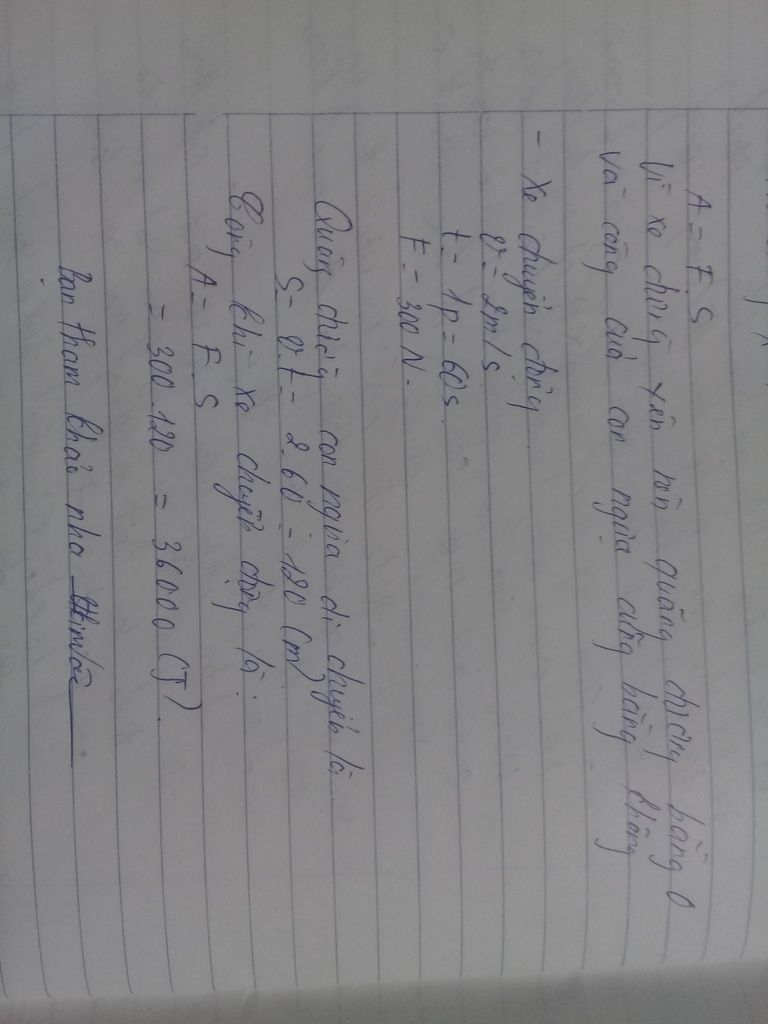 A = F.S
Vì xe đứng yên nên quãng đường bằng 0
và công của con ngựa cũng bằng không
- Xe chuyển động
v = 2m/s
t = 1p = 60s
F = 300 N.
Quãng đường con ngựa di chuyển là
S = v.t = 2.60 = 120 (m)
Công khi xe chuyển động là:
A = F.S
= 300.120 = 36000 (J)
Bạn tham khảo nha